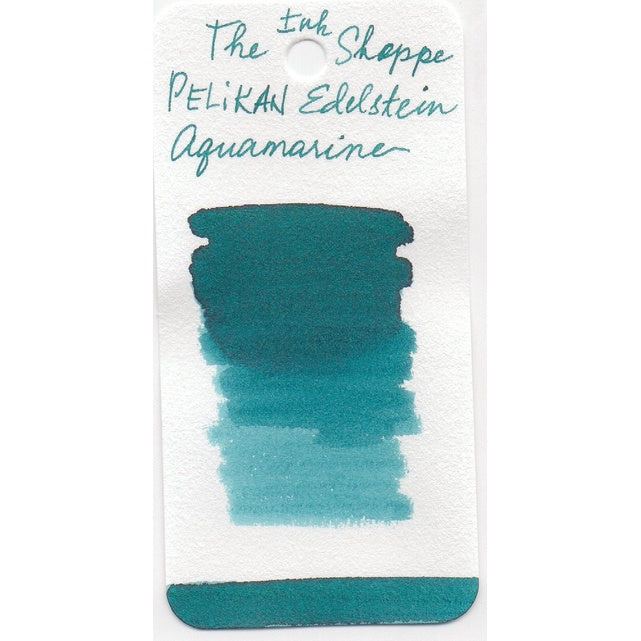 The Ink Shoppe
PELiKAN Edelstein
Aquamarine